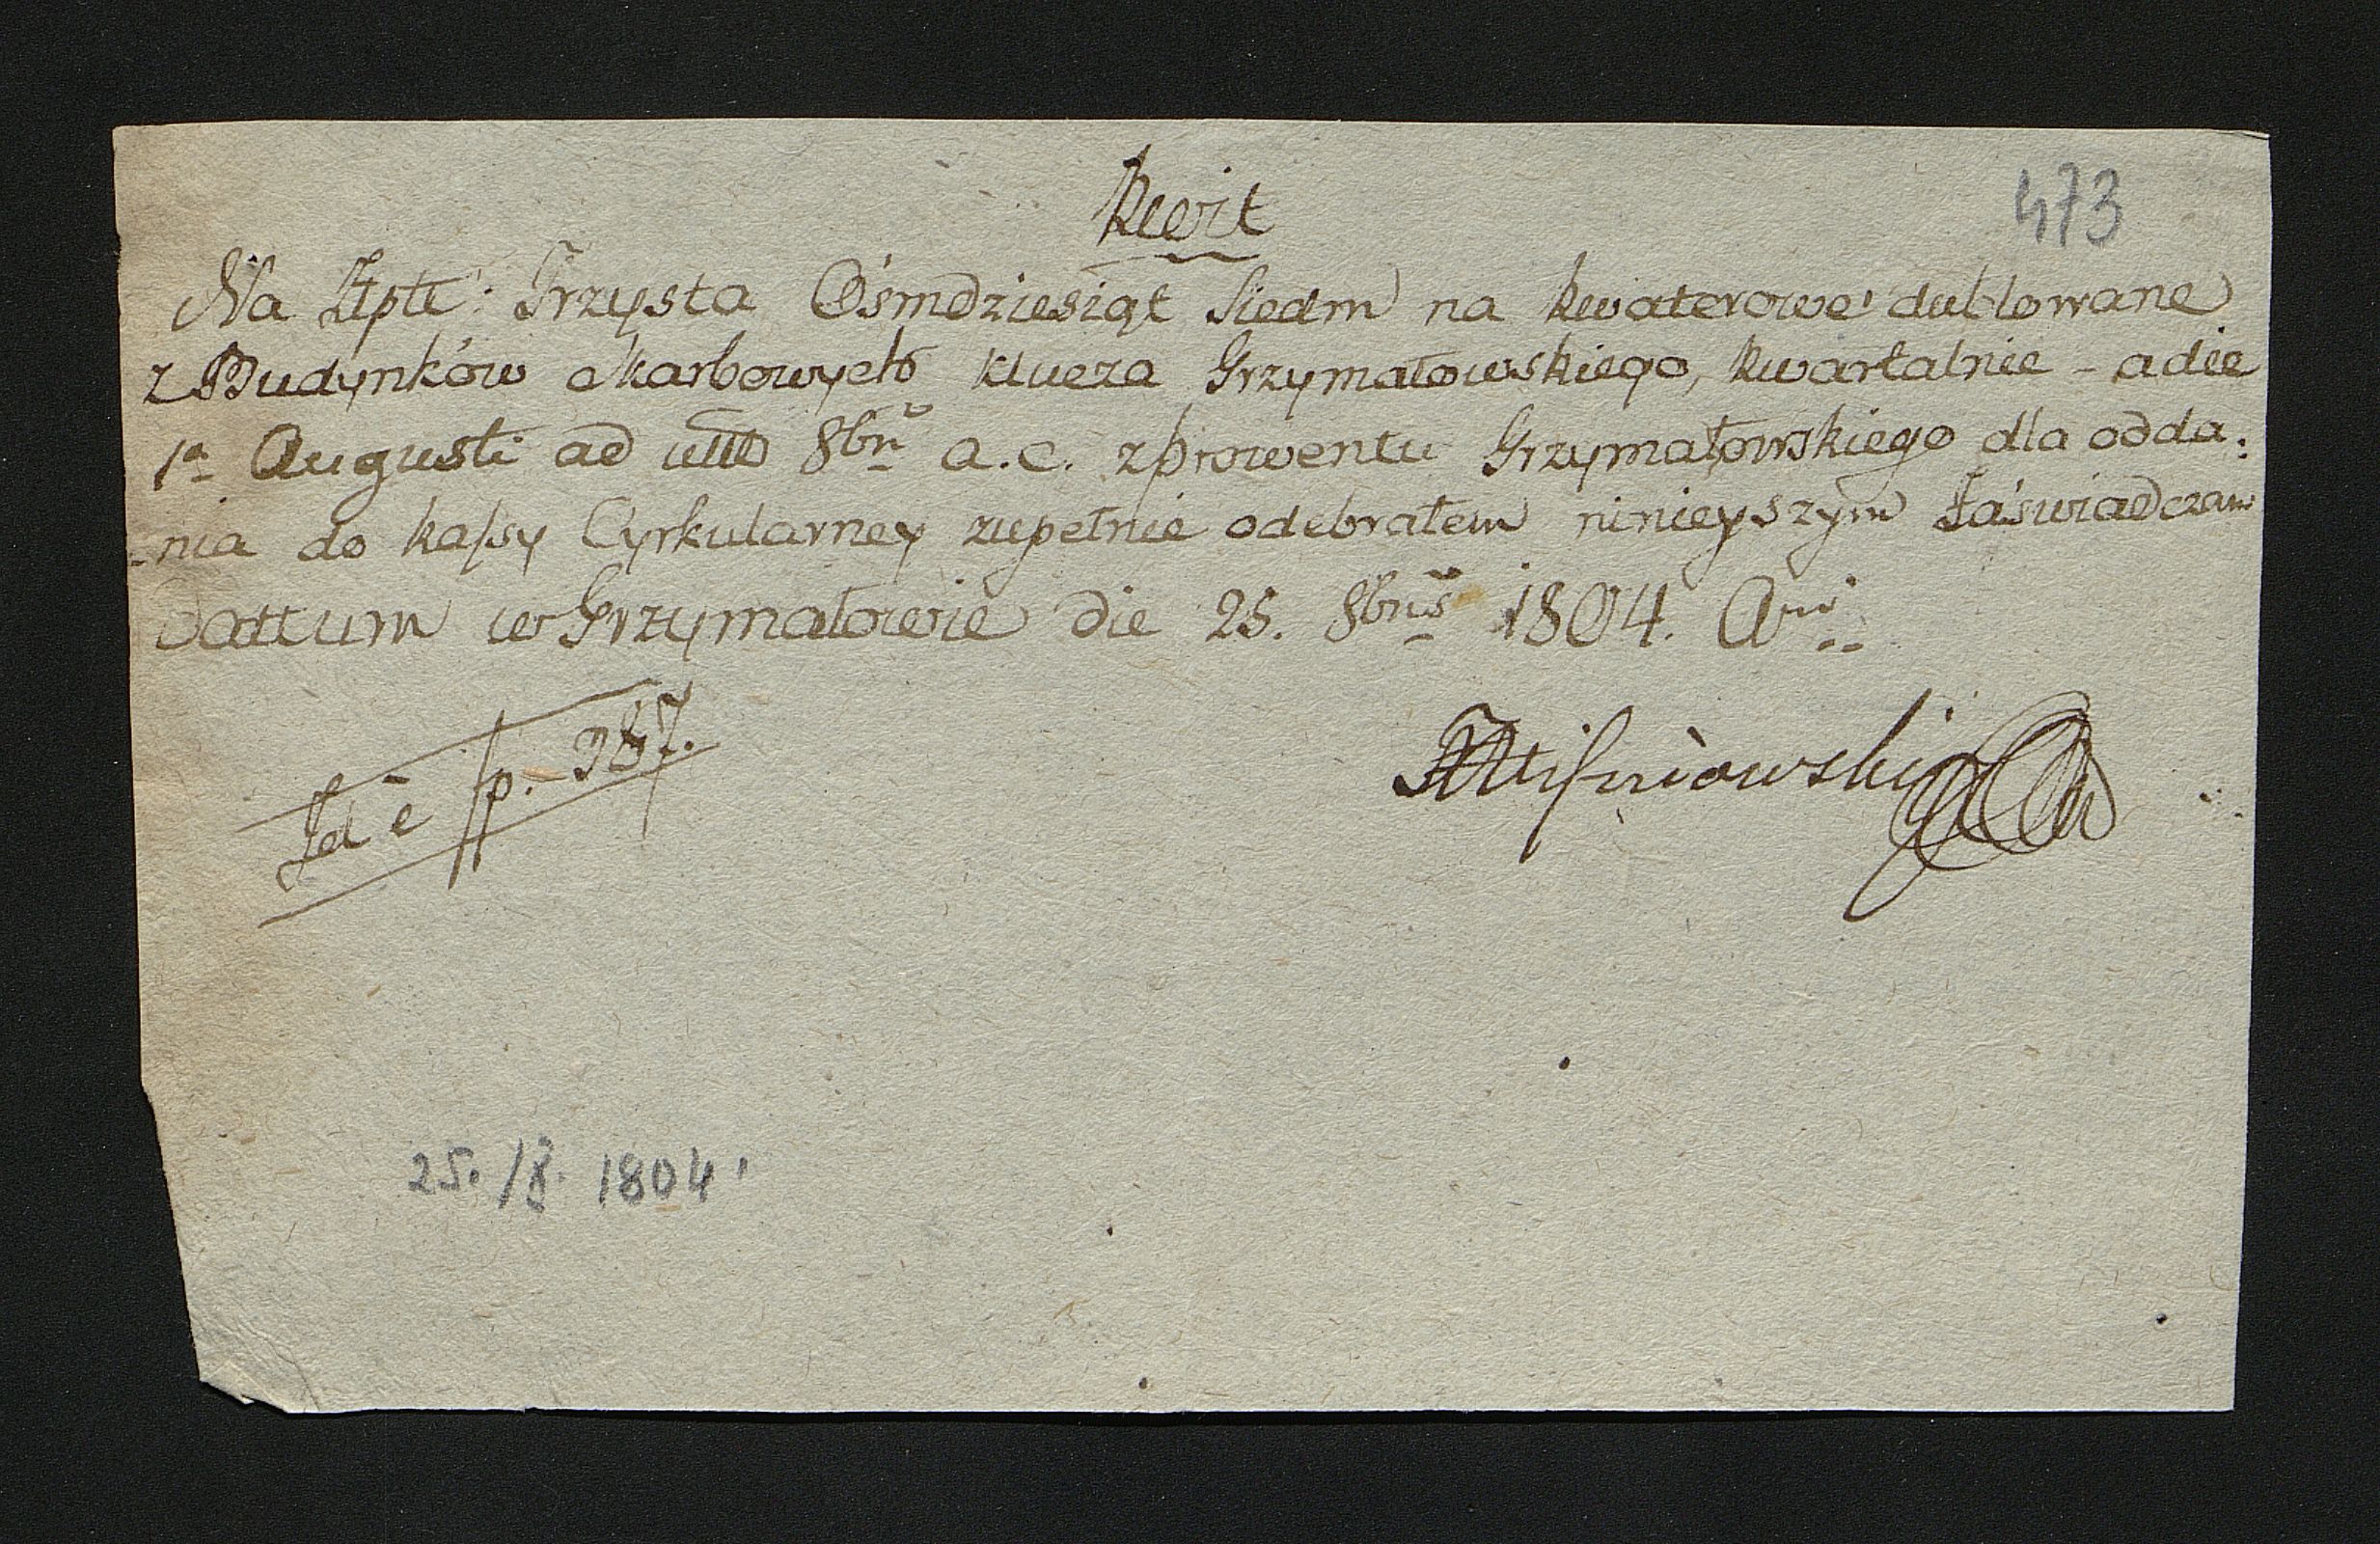 473
Kwit
Na Złpu: Trzysta Ośmdziesiąt Siedm na kwaterowe dublowane
z Budynków skarbowych klucza Grzymałowskiego, kwartalnie - a die
1a Augusti ad 8bris a.c. z prowentu Grzymałowskiego dla odda:
-nia do kassy Cyrkularney zupełnie odebrałem ninieyszym Zaświadczam
Dattum w Grzymałowie die 25. 8bris 1804. Ani
Id è fp. - 387.
Wiśniowski
25. /8. 1804.